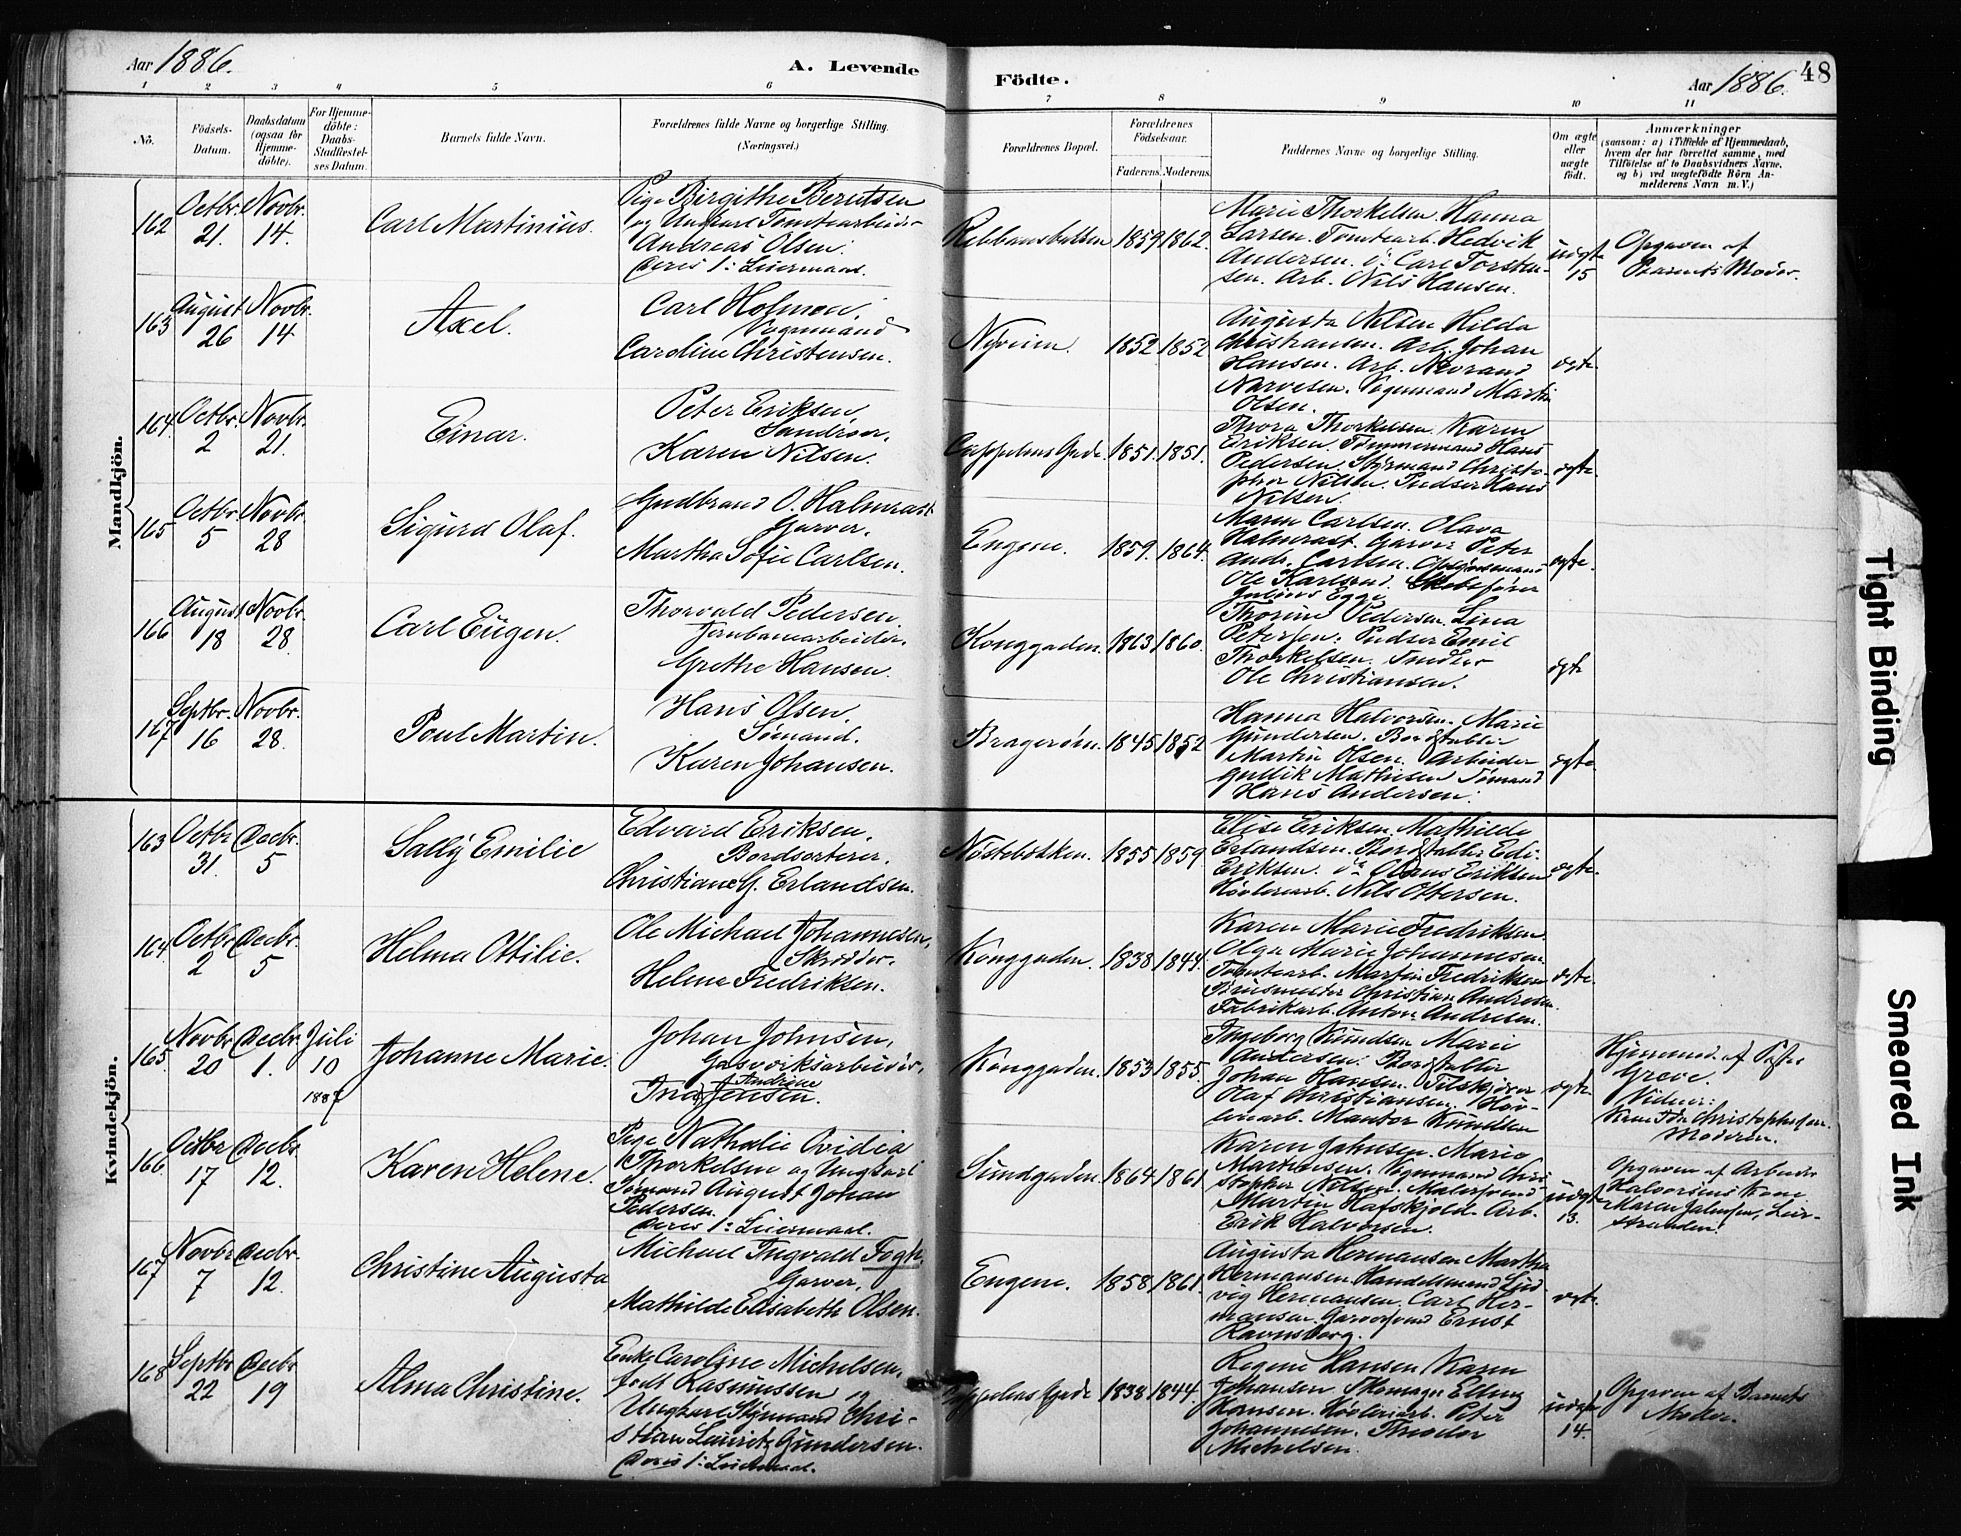 Aar 1886. A. Levende Födte. Aar 1886. 48
1 2 3 4 5 6 7 8 9 10 11
No. Födsels-Datum. Daabsdatum (ogsaa for Hjemmedöbte). For Hjemmedöbte: Daabs-Stadfæstelses Datum. Barnets fulde Navn. Forældrenes fulde Navne og borgerlige Stilling. (Næringsvei.) Forældrenes Bopæl. Forældrenes Födselsaar. Faderens. Moderens. Faddernes Navne og borgerlige Stilling. Om ægte eller uægte födt. Anmærkninger (saasom: a) i Tilfælde af Hjemmedaab, hvem der har forrettet samme, med Tilföielse af to Daabsvidners Navne, og b) ved uegtefödte Börn Anmelderens Navn m. V.)
Mandkjön.
162 Octbr. 21. Novbr. 14. Carl Martinius.
Pige Birgithe Berntsen
og Ungkarl Tomtearbeider
Andreas Olsen.
Deres 1ste Leiermaal.
1859 1862.
Marie Thorkelsen. Hanna
Larsen. Tomtearb. Hedvik
Andersen. Carl Torsten-
sen. Arb. Nils Hansen.
uægte 15
Opgaven af
Barnets Moder.
163 August 26 Novbr. 14 Axel.
Carl Hofmon,
Vognmand
Caroline Christensen.
Nyveien. 1852 1852
Augusta Nilsen Hilda
Christiansen. Arb. Johan
Hansen. Arb.
Narvesen. Vognmand Martin
Olsen.
ægte
164. Octbr. 2 Novbr. 21. Einar.
Peter Eriksen,
Karen Nilsen.
Cappelens Gade. 1851. 1851.
Thora Thorkelsen. Karen
Eriksen. Tömmermand Hans
Pedersen. Styrmand Christo-
pher Nilsen. Pudser Hans
Nilsen.
ægte.
165 Octbr. 5 Novbr. 28 Sigurd Olaf.
Gudbrand O. Halmrast
Garver.
Martha Sofie Carlsen.
Engene. 1859. 1864.
Maren Carlsen. Olava
Halmrast. Garver Peter
Andr. Carlsen.
Ole Karlsrud.
Julius Egge
ægte.
166 August 18 Novbr. 28. Carl Eugen.
Thorvald Pedersen.
Jernbanearbeider.
Grethe Hansen.
Konggaden. 1863 1860.
Thorine Pedersen. Lina
Petersen. Pudser Emil
Thorkelsen. Snedker
Ole Christiansen.
ægte
167 Septbr. 16 Novbr. 28. Poul Martin.
Hans Olsen.
Sömand.
Karen Johansen.
Bragerøen. 1845 1852
Hanna Halvorsen. Marie
Gundersen. Bordstabler
Martin Olsen. Arbeider
Gullik Mathisen Sömand
Hans Andersen.
ægte
Kvindekjön.
163 Octbr 31. Decbr. 5 Sally Emilie
Edvard Eriksen,
Bordsorterer.
Christiane G. Erlandsen.
Nöstebakken. 1855 1859
Elise Eriksen Mathilde
Erlandsen. Bordstabler Edv.
Eriksen. Claus Eriksen
Høvleriarb. Nils Ottersen.
ægte.
164. Octbr 2 Decbr. 5 Helma Ottilie.
Ole Michael Johannesen,
Skrædder.
Helene Fredriksen.
Konggaden. 1838 1844.
Karen Marie Fredriksen.
Olga Marie Johannesen.
Tomtearb. Martin Fredriksen
Christian Andresen.
Fabrikarb. Anton Andresen.
ægte.
165 Novbr 20 Decbr. 1. Juli 10 1887 Johanne Marie.
Johan Johnsen,
Gasværksarbeider,
Andrine
Jensen.
Konggaden. 1853 1855.
Ingeborg Knudsen Marie
Andersen. Bordstabler
Johan Hansen.
Olaf Christiansen. Høv-
leriarb. Knudsen
ægte.
Hjemmed. af Pastor
Greve.
Vidner:
Kone Ida Christophersen
Moderen.
166. Octbr 17 Decbr 12. Karen Helene.
Pige Nathalie Ovidia
Thorkelsen og Ungkarl
Sömand August Johan
Pedersen.
Deres 1ste Leiermaal.
Sundgaden. 1864 1861
Karen Jahnsen. Marie
Martinsen. Vognmand Chri-
stopher Nilsen. Malersvend
Martin Hafskjold. Arb.
Erik Halvorsen.
uægte 13.
Opgaven af Arbeider
Halvorsens Kone
Maren Jahnsen, Lier-
stranden.
167 Novbr 7 Decbr. 12. Christine Augusta
Michael Ingvald Fogh,
Garver,
Mathilde Elisabeth Olsen.
Engene. 1858 1861.
Augusta Hermansen Martha
Hermansen. Handelsmand Lud-
vig Hermansen. Carl Her-
mansen. Garversvend Ernst
Ravnsborg.
ægte.
168 Septbr 22 Decbr 19 Alma Christine.
Enke Caroline Michelsen,
födt Rasmussen og
Ungkarl Styrmand Chri-
stian Lauritz Gundersen.
Deres 1ste Leiermaal.
Cappelens Gade 1838 1844.
Regine Hansen Karen
Johansen Elling
Hansen. Høvleriarb. Peter
Johannesen. Theodor
Michelsen.
uægte 14.
Opgaven af Barnets
Moder.
Tight Binding
Smeared Ink